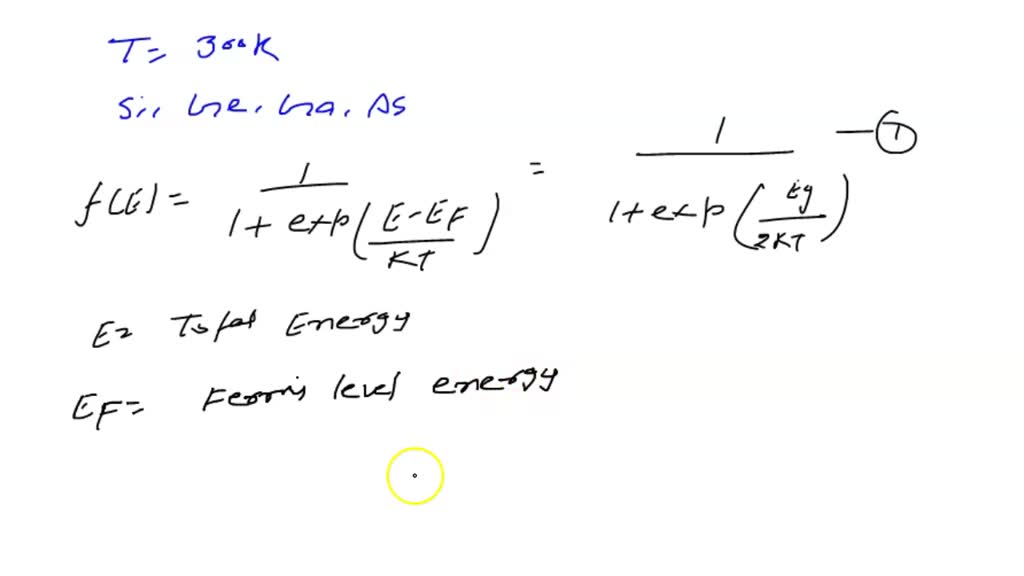 T = 300K
Si, Ge, Ga, As
f(E) = 1 / (1 + exp((E - EF) / KT)) = 1 / (1 + exp(Eg / 2KT)) — ①
E= Total Energy
EF= Fermis level energy